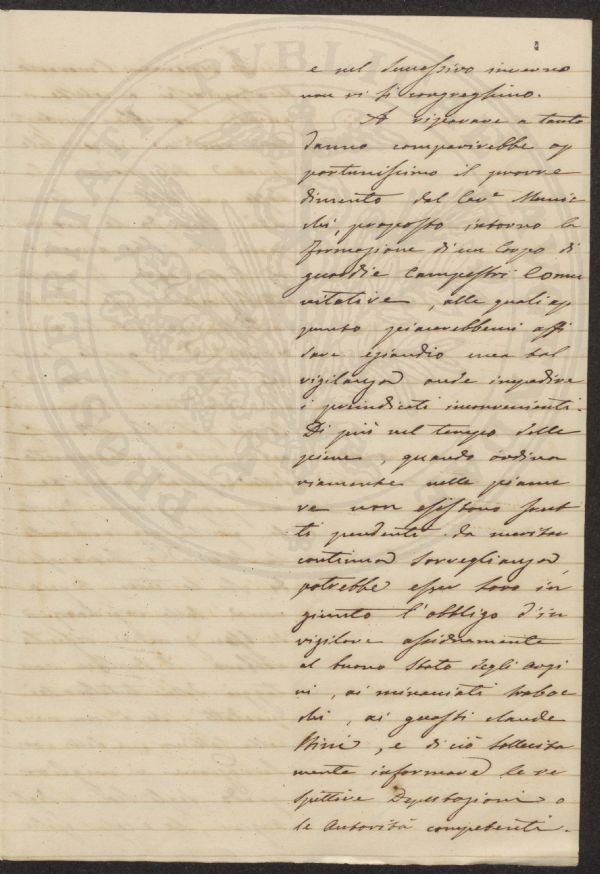 e nel successivo inverno
non vi si congreghino.
A riparare a tanto
danno comparirebbe op
portunissimo il provve
dimento dal Cav.e
chi, proposto intorno la
formazione di un Corpo di
guardie Campestri Comu
nitative, alle quali ap
punto piacerebbemi affi
dare eziandio una tal
vigilanza onde impedire
i preindicati inconvenienti.
Di più nel tempo delle
piene, quando ordina
riamente nelle pianu
re non esistono frut
ti pendenti da meritar
continua sorveglianza,
potrebbe esser loro in
giunto l'obbligo d'in
vigilare assiduamente
al buono stato degli argi
ni, ai minacciati traboc
chi, ai guasti clande
stini, e di ciò sollecita
mente informare le re
spettive Deputazioni o
le Autorità competenti.
PROSPERITATI PVBLI